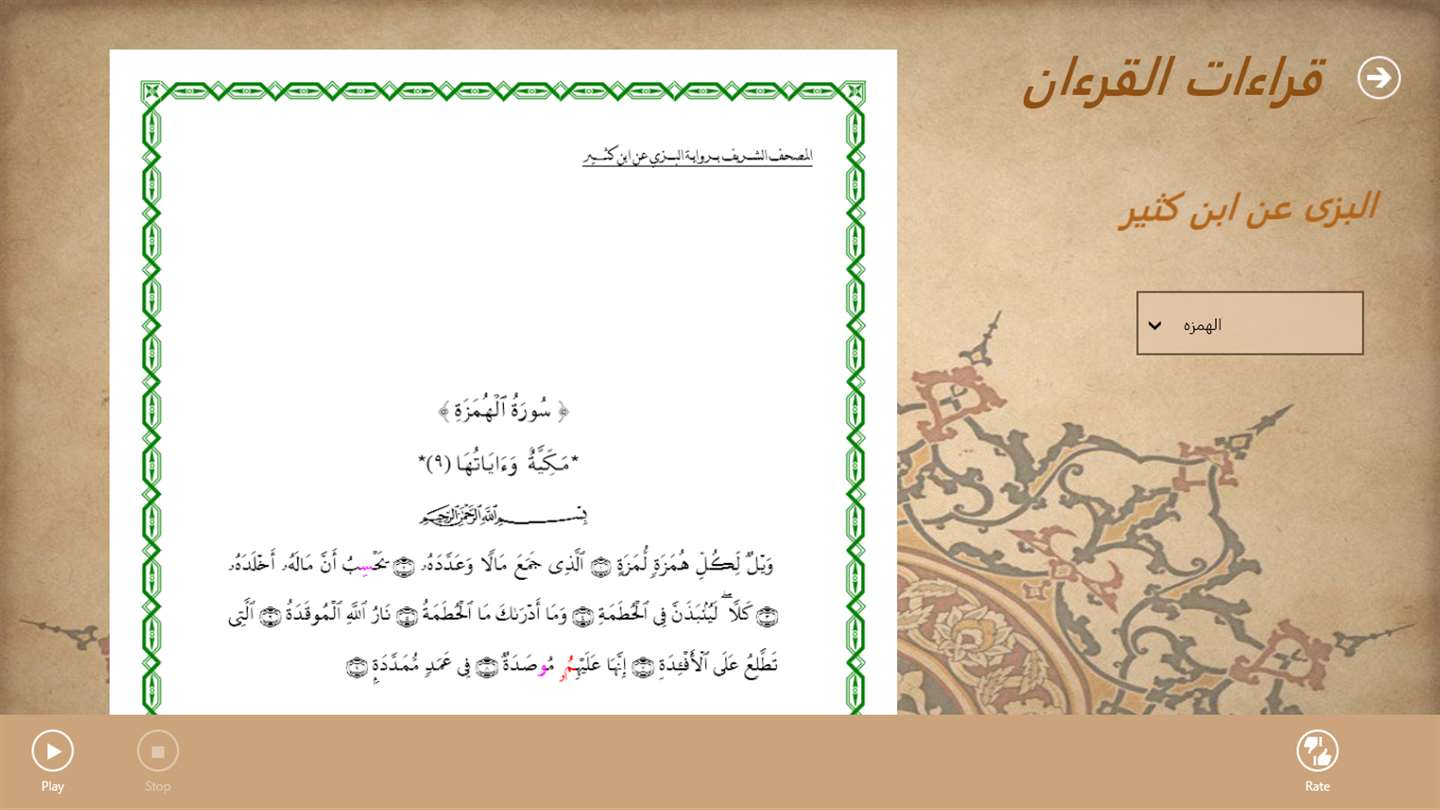 قراءات القرءان
البزى عن ابن كثير
الهمزه
المصحف الشريف برواية البزي عن ابن كثير
﴿ سُورَةُ ٱلْهُمَزَةِ ﴾
*مَكِّيَّةٌ وَءَايَاتُهَا (٩)*
بِسْمِ ٱللَّهِ ٱلرَّحْمَٰنِ ٱلرَّحِيمِ
وَيْلٌ لِّكُلِّ هُمَزَةٍ لُّمَزَةٍ ۝ ٱلَّذِى جَمَعَ مَالًا وَعَدَّدَهُۥ ۝ يَحْسِبُ أَنَّ مَالَهُۥ أَخْلَدَهُۥ
۝ كَلَّا ۖ لَيُنۢبَذَنَّ فِى ٱلْحُطَمَةِ ۝ وَمَا أَدْرَىٰكَ مَا ٱلْحُطَمَةُ ۝ نَارُ ٱللَّهِ ٱلْمُوقَدَةُ ۝ ٱلَّتِى
تَطَّلِعُ عَلَى ٱلْأَفْـِٔدَةِ ۝ إِنَّهَا عَلَيْهِمُۥ مُوصَدَةٌ ۝ فِى عَمَدٍ مُّمَدَّدَةٍۭ ۝
Play
Stop
Rate